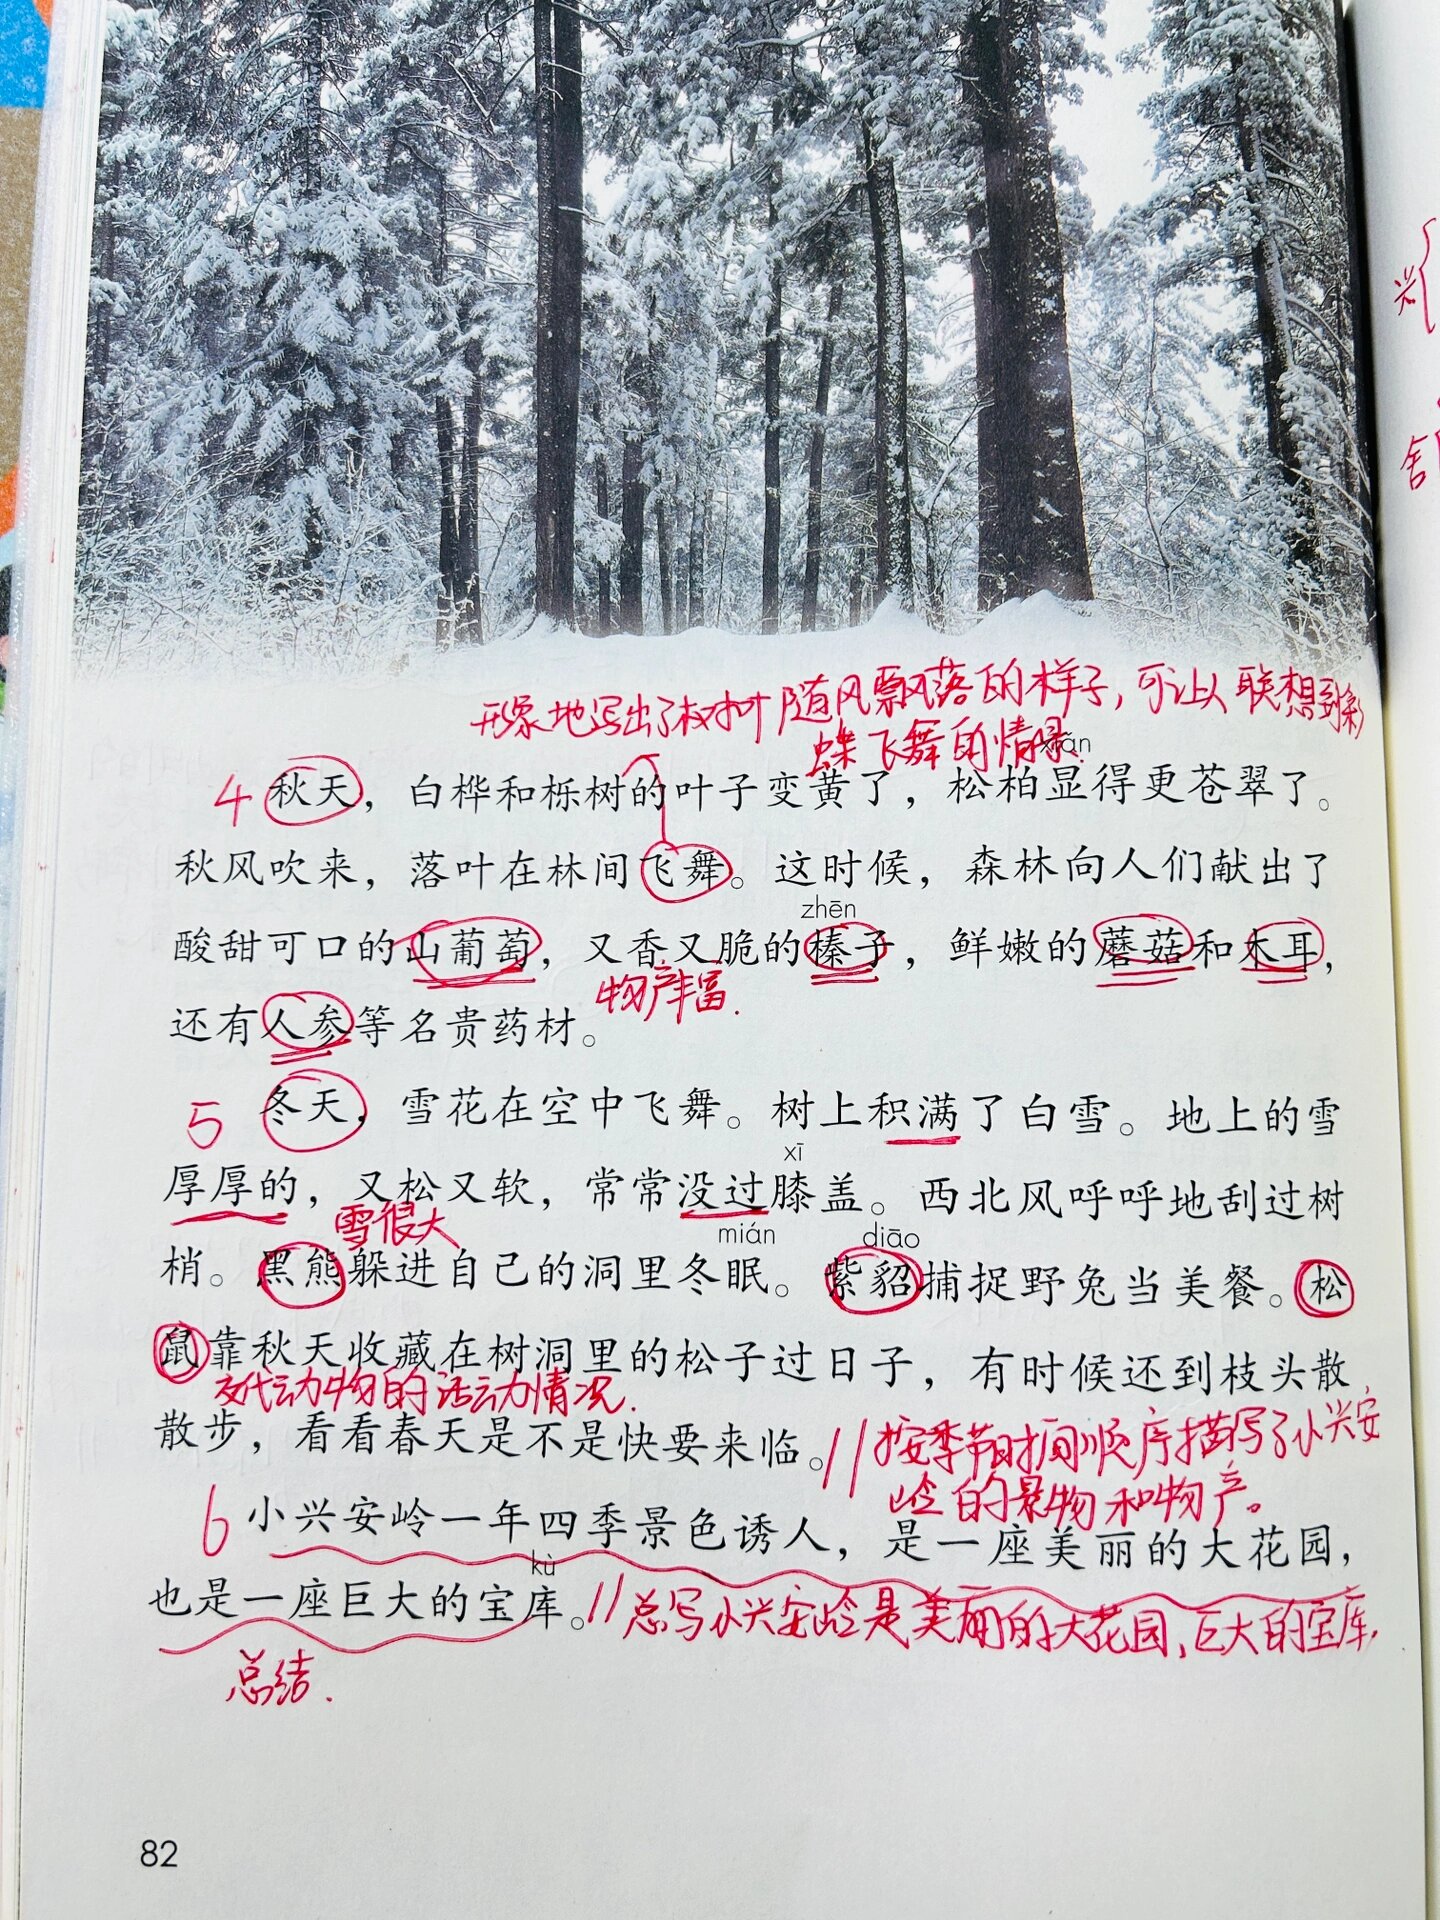 形象地写出了树叶随风飘落的样子，可让人联想到彩
蝶飞舞的情景.
xiǎn
4 秋天，白桦和栎树的叶子变黄了，松柏显得更苍翠了。
秋风吹来，落叶在林间飞舞。这时候，森林向人们献出了
zhēn
酸甜可口的山葡萄，又香又脆的榛子，鲜嫩的蘑菇和木耳，
物产丰富.
还有人参等名贵药材。
5 冬天，雪花在空中飞舞。树上积满了白雪。地上的雪
xī
厚厚的，又松又软，常常没过膝盖。西北风呼呼地刮过树
雪很大
mián diāo
梢。黑熊躲进自己的洞里冬眠。紫貂捕捉野兔当美餐。松
鼠靠秋天收藏在树洞里的松子过日子，有时候还到枝头散
交代动物的活动情况.
散步，看看春天是不是快要来临。//按季节时间顺序描写了小兴安
岭的景物和物产。
6 小兴安岭一年四季景色诱人，是一座美丽的大花园，
kù
也是一座巨大的宝库。//总写小兴安岭是美丽的大花园，巨大的宝库.
总结.
82
兴
舍